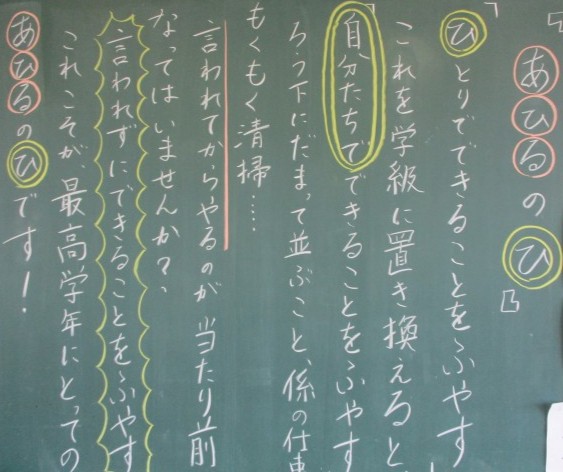 『あひるのひ』
「ひとりでできることをふやす
これを学級に置き換えると
「自分たちでできることをふやす
ろう下にだまって並ぶこと、係の仕事
もくもく清掃……
言われてからやるのが当たり前
なってはいませんか？、
言われずにできることをふやす
これこそが、最高学年にとっての
あひるのひです！